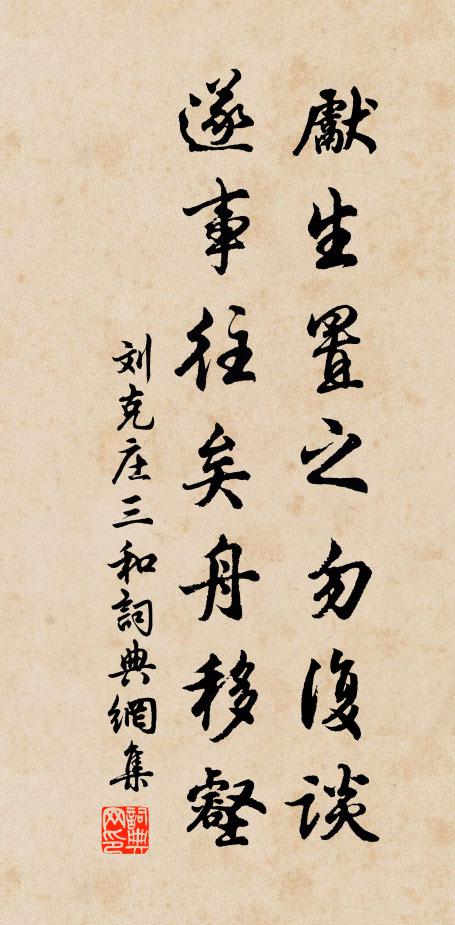 獻生置之勿復談
遂事往矣舟移壑
刘克庄三和詞典網集
詞典网印